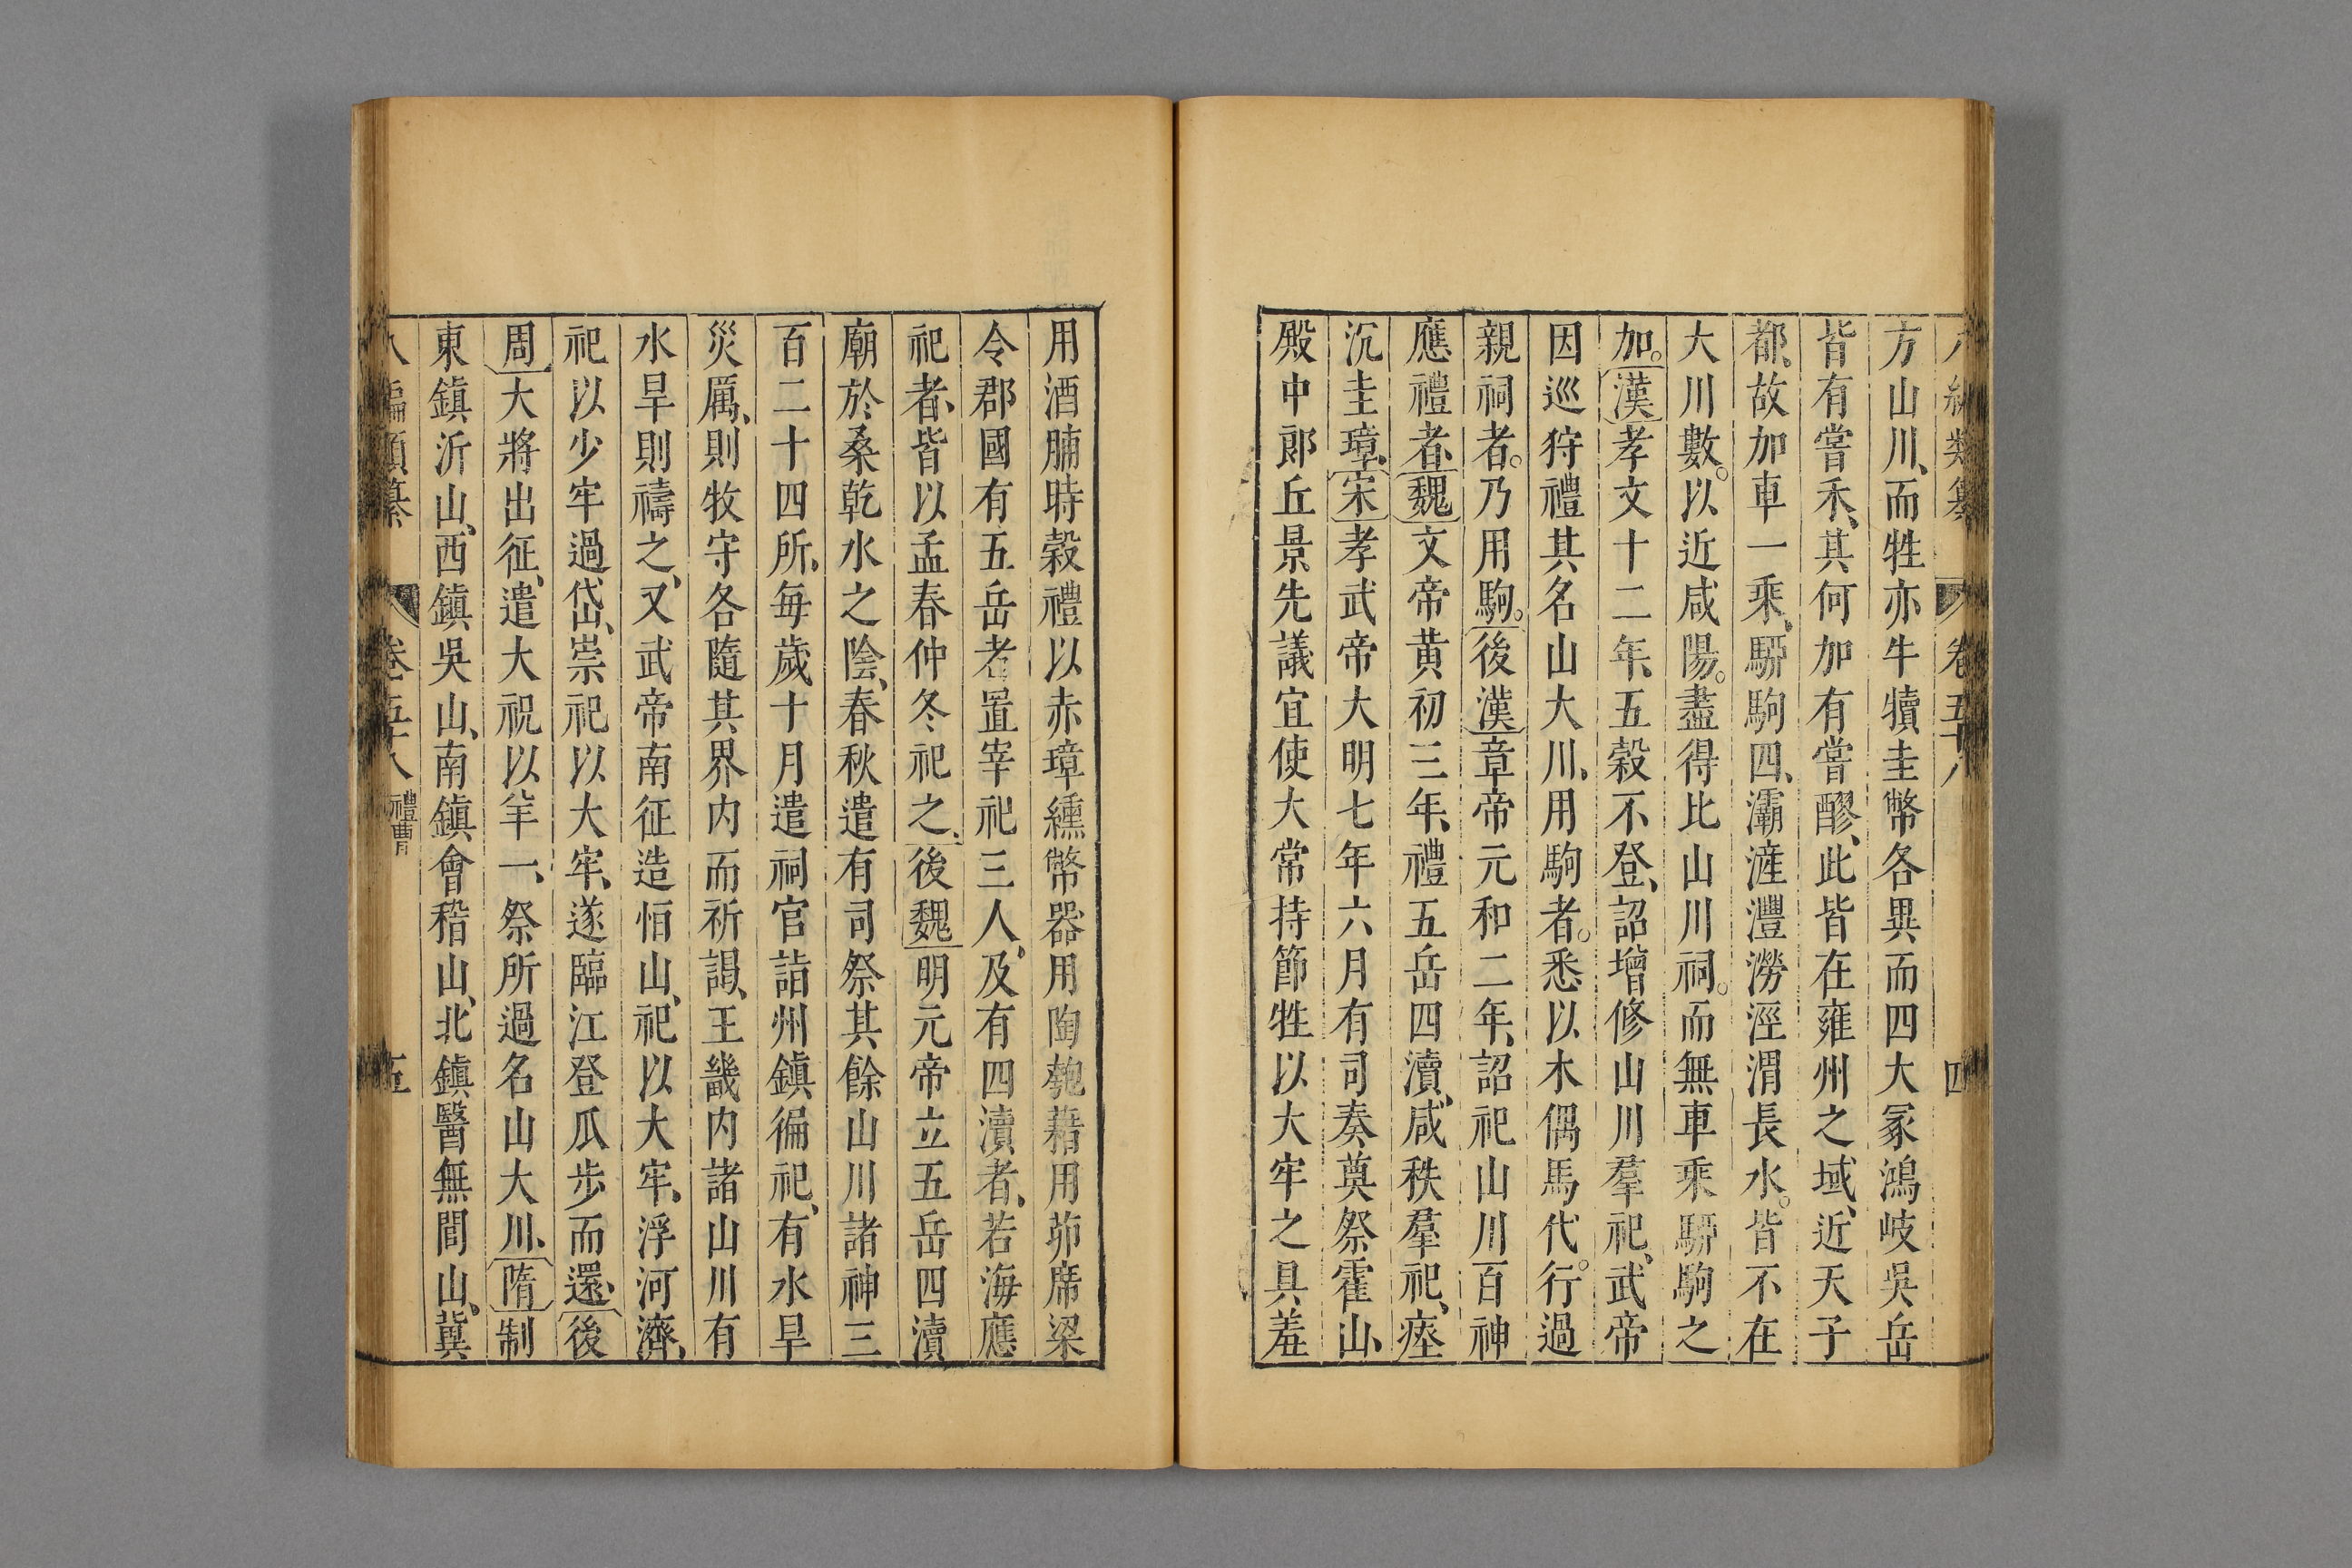 八編類纂 卷五十八 四
方山川、而牲亦牛犢圭幣各異而四大冢鴻岐吳岳
皆有嘗禾、其何加有嘗醪、此皆在雍州之域、近天子
都、故加車一乘、騮駒四、灞滻灃澇涇渭長水。皆不在
大川數。以近咸陽。盡得比山川祠。而無車乘騮駒之
加。漢孝文十二年、五穀不登、詔增修山川羣祀、武帝
因巡狩禮其名山大川、用駒者。悉以木偶馬代。行過
親祠者。乃用駒。後漢章帝元和二年、詔祀山川百神
應禮者、魏文帝黃初三年、禮五岳四瀆、咸秩羣祀、瘞
沉圭璋、宋孝武帝大明七年六月有司奏奠祭霍山、
殿中郎丘景先議宜使大常持節牲以大牢之具羞
用酒脯時穀禮以赤璋纁幣器用陶匏藉用茆席梁
令郡國有五岳者置宰祀三人、及有四瀆者、若海應
祀者、皆以孟春仲冬祀之、後魏明元帝立五岳四瀆
廟於桑乾水之陰、春秋遣有司祭其餘山川諸神三
百二十四所、每歲十月遣祠官詣州鎮徧祀、有水旱
災厲、則牧守各隨其界内而祈謁、王畿内諸山川有
水旱則禱之、又武帝南征造恒山、祀以大牢、浮河濟、
祀以少牢過岱、崇祀以大牢、遂臨江登瓜步而還、後
周大將出征、遣大祝以羊一、祭所過名山大川、隋制
東鎮沂山、西鎮吳山、南鎮會稽山、北鎮醫無閭山、冀
八編類纂 卷五十八 禮曹 五